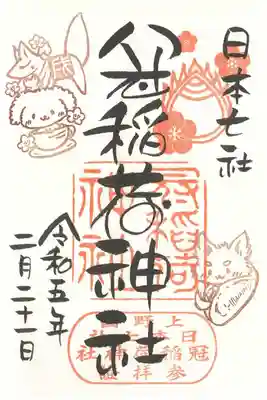 日本七社
冠稲荷神社
令和五年
二月二十一日
上野国
日本七社
冠稲荷神社